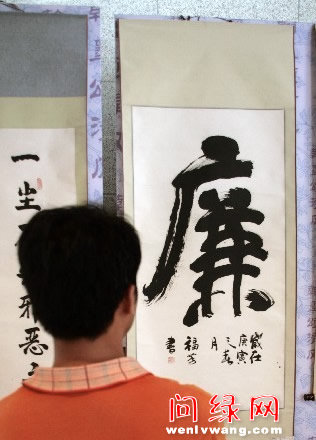 廉
歲在
庚寅
之春
月
福芳
書
一尘
邪恶
问绿网
wenlvwang.com